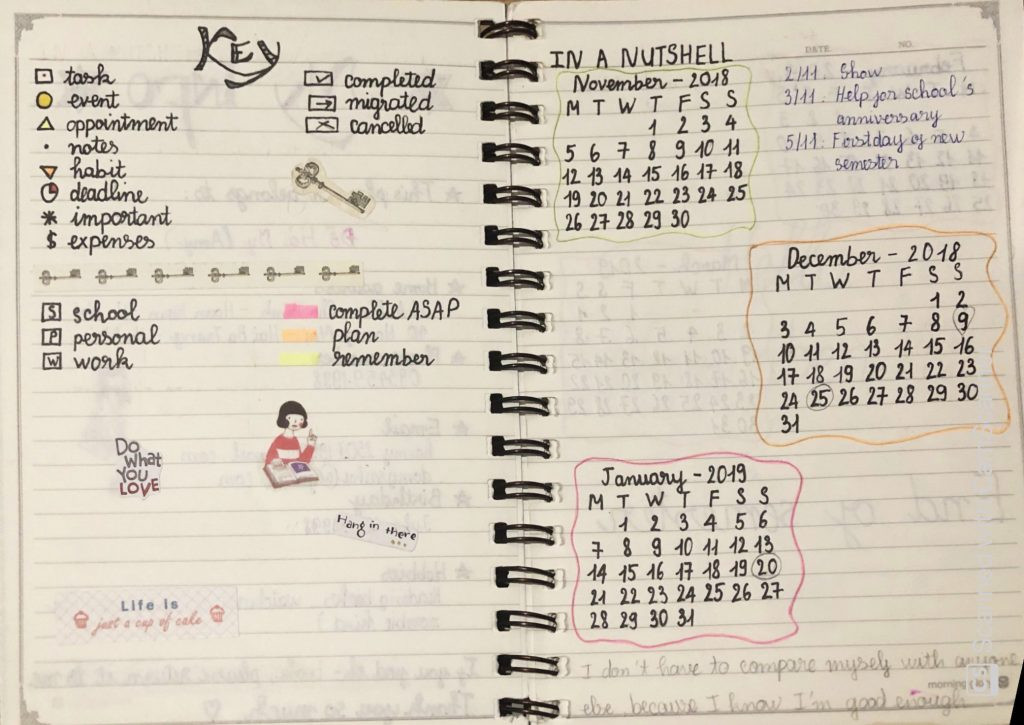 KEY
task
event
appointment
notes
habit
deadline
important
$ expenses
completed
migrated
cancelled
S school
P personal
W work
complete ASAP
plan
remember
DO
WHAT
YOU
LOVE
Hang in there
...
Life is
just a cup of cake
IN A NUTSHELL
DATE. NO.
November - 2018
M T W T F S S
1 2 3 4
5 6 7 8 9 10 11
12 13 14 15 16 17 18
19 20 21 22 23 24 25
26 27 28 29 30
2/11: Show
3/11: Help for school's
anniversary
5/11: First day of new
semester
December - 2018
M T W T F S S
1 2
3 4 5 6 7 8 9
10 11 12 13 14 15 16
17 18 19 20 21 22 23
24 25 26 27 28 29 30
31
January - 2019
M T W T F S S
1 2 3 4 5 6
7 8 9 10 11 12 13
14 15 16 17 18 19 20
21 22 23 24 25 26 27
28 29 30 31
I don't have to compare myself with anyone
else because I know I'm good enough
morning glory